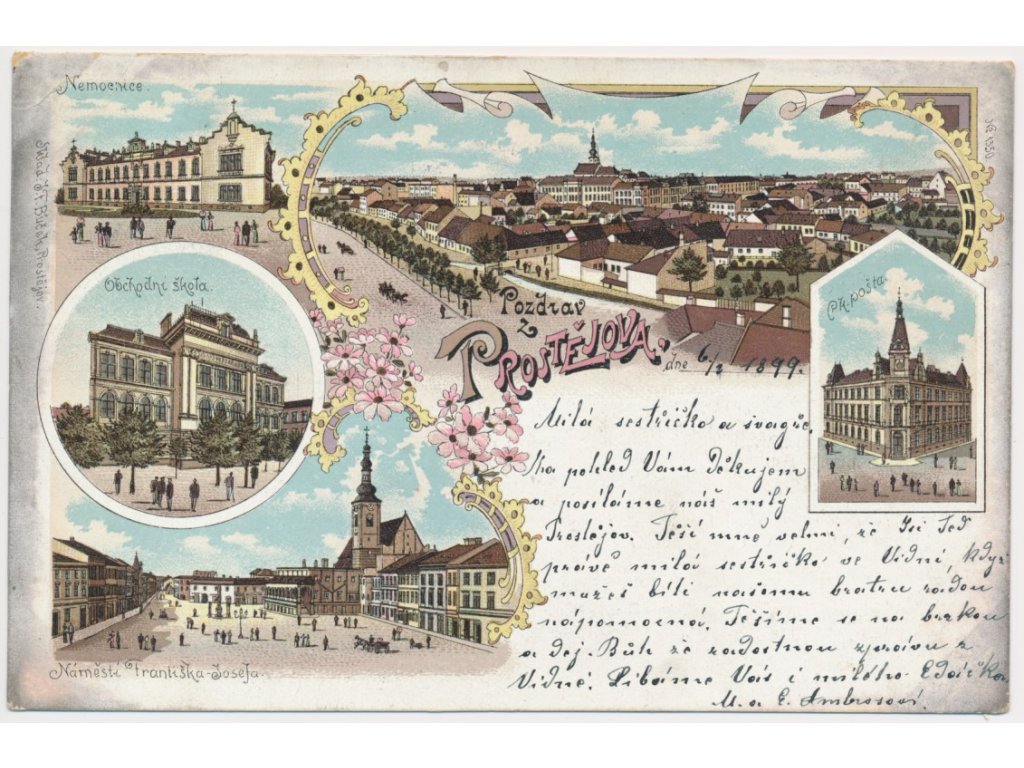 Nemocnice.
Obchodní škola.
Náměstí Františka-Josefa.
Pozdrav
z
PROSTĚJOVA.
dne 6/2 1899.
Pk. pošta
№ 4350
Milá sestřičko a švagře.
Na pohled Vám Děkujem
a posíláme náš milý
Prostějov. Těší mne velmi, že Jsi Teď
právě milá sestřičko ve Vídni, když
můžeš býti našemu bratru radou
nápomocná. Těšíme se na brzkou
a dej Bůh že radostnou zprávu z
Vídně. Líbáme Vás i milého Edáčka
M. a E. Ambrosovi.